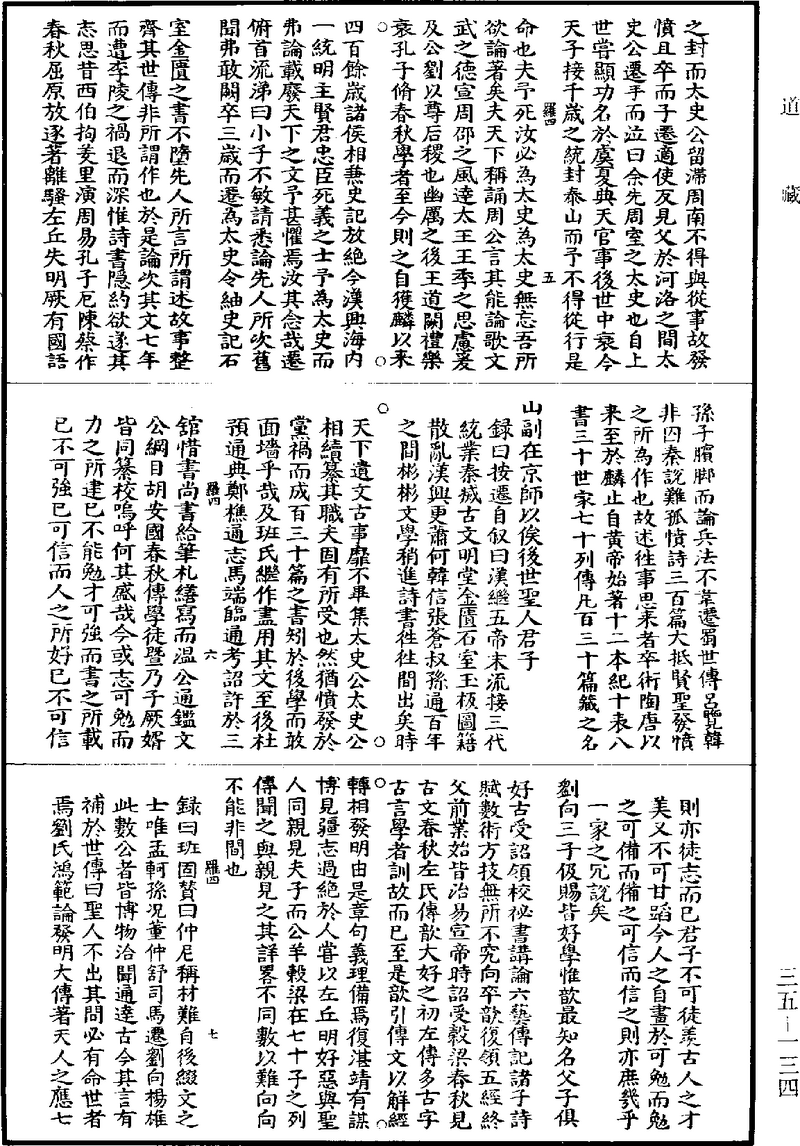 道藏
之封而太史公留滯周南不得與從事故發
憤且卒而子遷適使反見父於河洛之間太
史公遷手而泣曰余先周室之太史也自上
世嘗顯功名於虞夏典天官事後世中衰今
天子接千歲之統封泰山而予不得從行是
羅四 五
命也夫予死汝必為太史為太史無忘吾所
欲論著矣夫天下稱誦周公言其能論歌文
武之德宣周邵之風達太王王季之思慮爰
及公劉以尊后稷也幽厲之後王道闕禮樂
衰孔子脩春秋學者至今則之自獲麟以來
四百餘歲諸侯相兼史記放絕今漢興海內
一統明主賢君忠臣死義之士予為太史而
弗論載廢天下之文予甚懼焉汝其念哉遷
俯首流涕曰小子不敏請悉論先人所次舊
聞弗敢闕卒三歲而遷為太史令紬史記石
室金匱之書不墮先人所言所謂述故事整
齊其世傳非所謂作也於是論次其文七年
而遭李陵之禍退而深惟詩書隱約欲遂其
志思昔西伯拘羑里演周易孔子厄陳蔡作
春秋屈原放逐著離騷左丘失明厥有國語
孫子臏腳而論兵法不韋遷蜀世傳呂覽韓
非囚秦說難孤憤詩三百篇大抵賢聖發憤
之所為作也故述往事思來者卒術陶唐以
來至於麟止自黃帝始著十二本紀十表八
書三十世家七十列傳凡百三十篇藏之名
山副在京師以俟後世聖人君子
錄曰按遷自敘曰漢繼五帝末流接三代
統業秦撥古文明堂金匱石室玉板圖籍
散亂漢興更蕭何韓信張蒼叔孫通百年
之間彬彬文學稍進詩書往往間出矣時
天下遺文古事靡不畢集太史公太史公
相續纂其職夫固有所受也然猶憤發於
黨禍而成百三十篇之書矧於後學而敢
面墻乎哉及班氏繼作盡用其文至後杜
預通典鄭樵通志馬端臨通考詔許於三
羅四 六
舘惜書尚書給筆札繕寫而溫公通鑑文
公綱目胡安國春秋傳學徒暨乃子厥婿
皆同纂校嗚呼何其盛哉今或志可勉而
力之所建已不能勉才可強而書之所載
已不可強已可信而人之所好已不可信
則亦徒志而已君子不可徒羨古人之才
美又不可甘蹈今人之自畫於可勉而勉
之可備而備之可信而信之則亦庶幾乎
一家之冗說矣
劉向三子伋賜皆好學惟歆最知名父子俱
好古受詔領校祕書講論六藝傳記諸子詩
賦數術方技無所不究向卒歆復領五經終
父前業始皆治易宣帝時詔受穀梁春秋見
古文春秋左氏傳歆大好之初左傳多古字
古言學者訓故而已至是歆引傳文以解經
轉相發明由是章句義理備焉復湛靖有謀
博見彊志過絕於人嘗以左丘明好惡與聖
人同親見夫子而公羊穀梁在七十子之列
傳聞之與親見之其詳畧不同數以難向向
不能非間也
羅四 七
錄曰班固贊曰仲尼稱材難自後綴文之
士唯孟軻孫況董仲舒司馬遷劉向楊雄
此數公者皆博物洽聞通達古今其言有
補於世傳曰聖人不出其間必有命世者
焉劉氏鴻範論發明大傳著天人之應七
三五-一三四